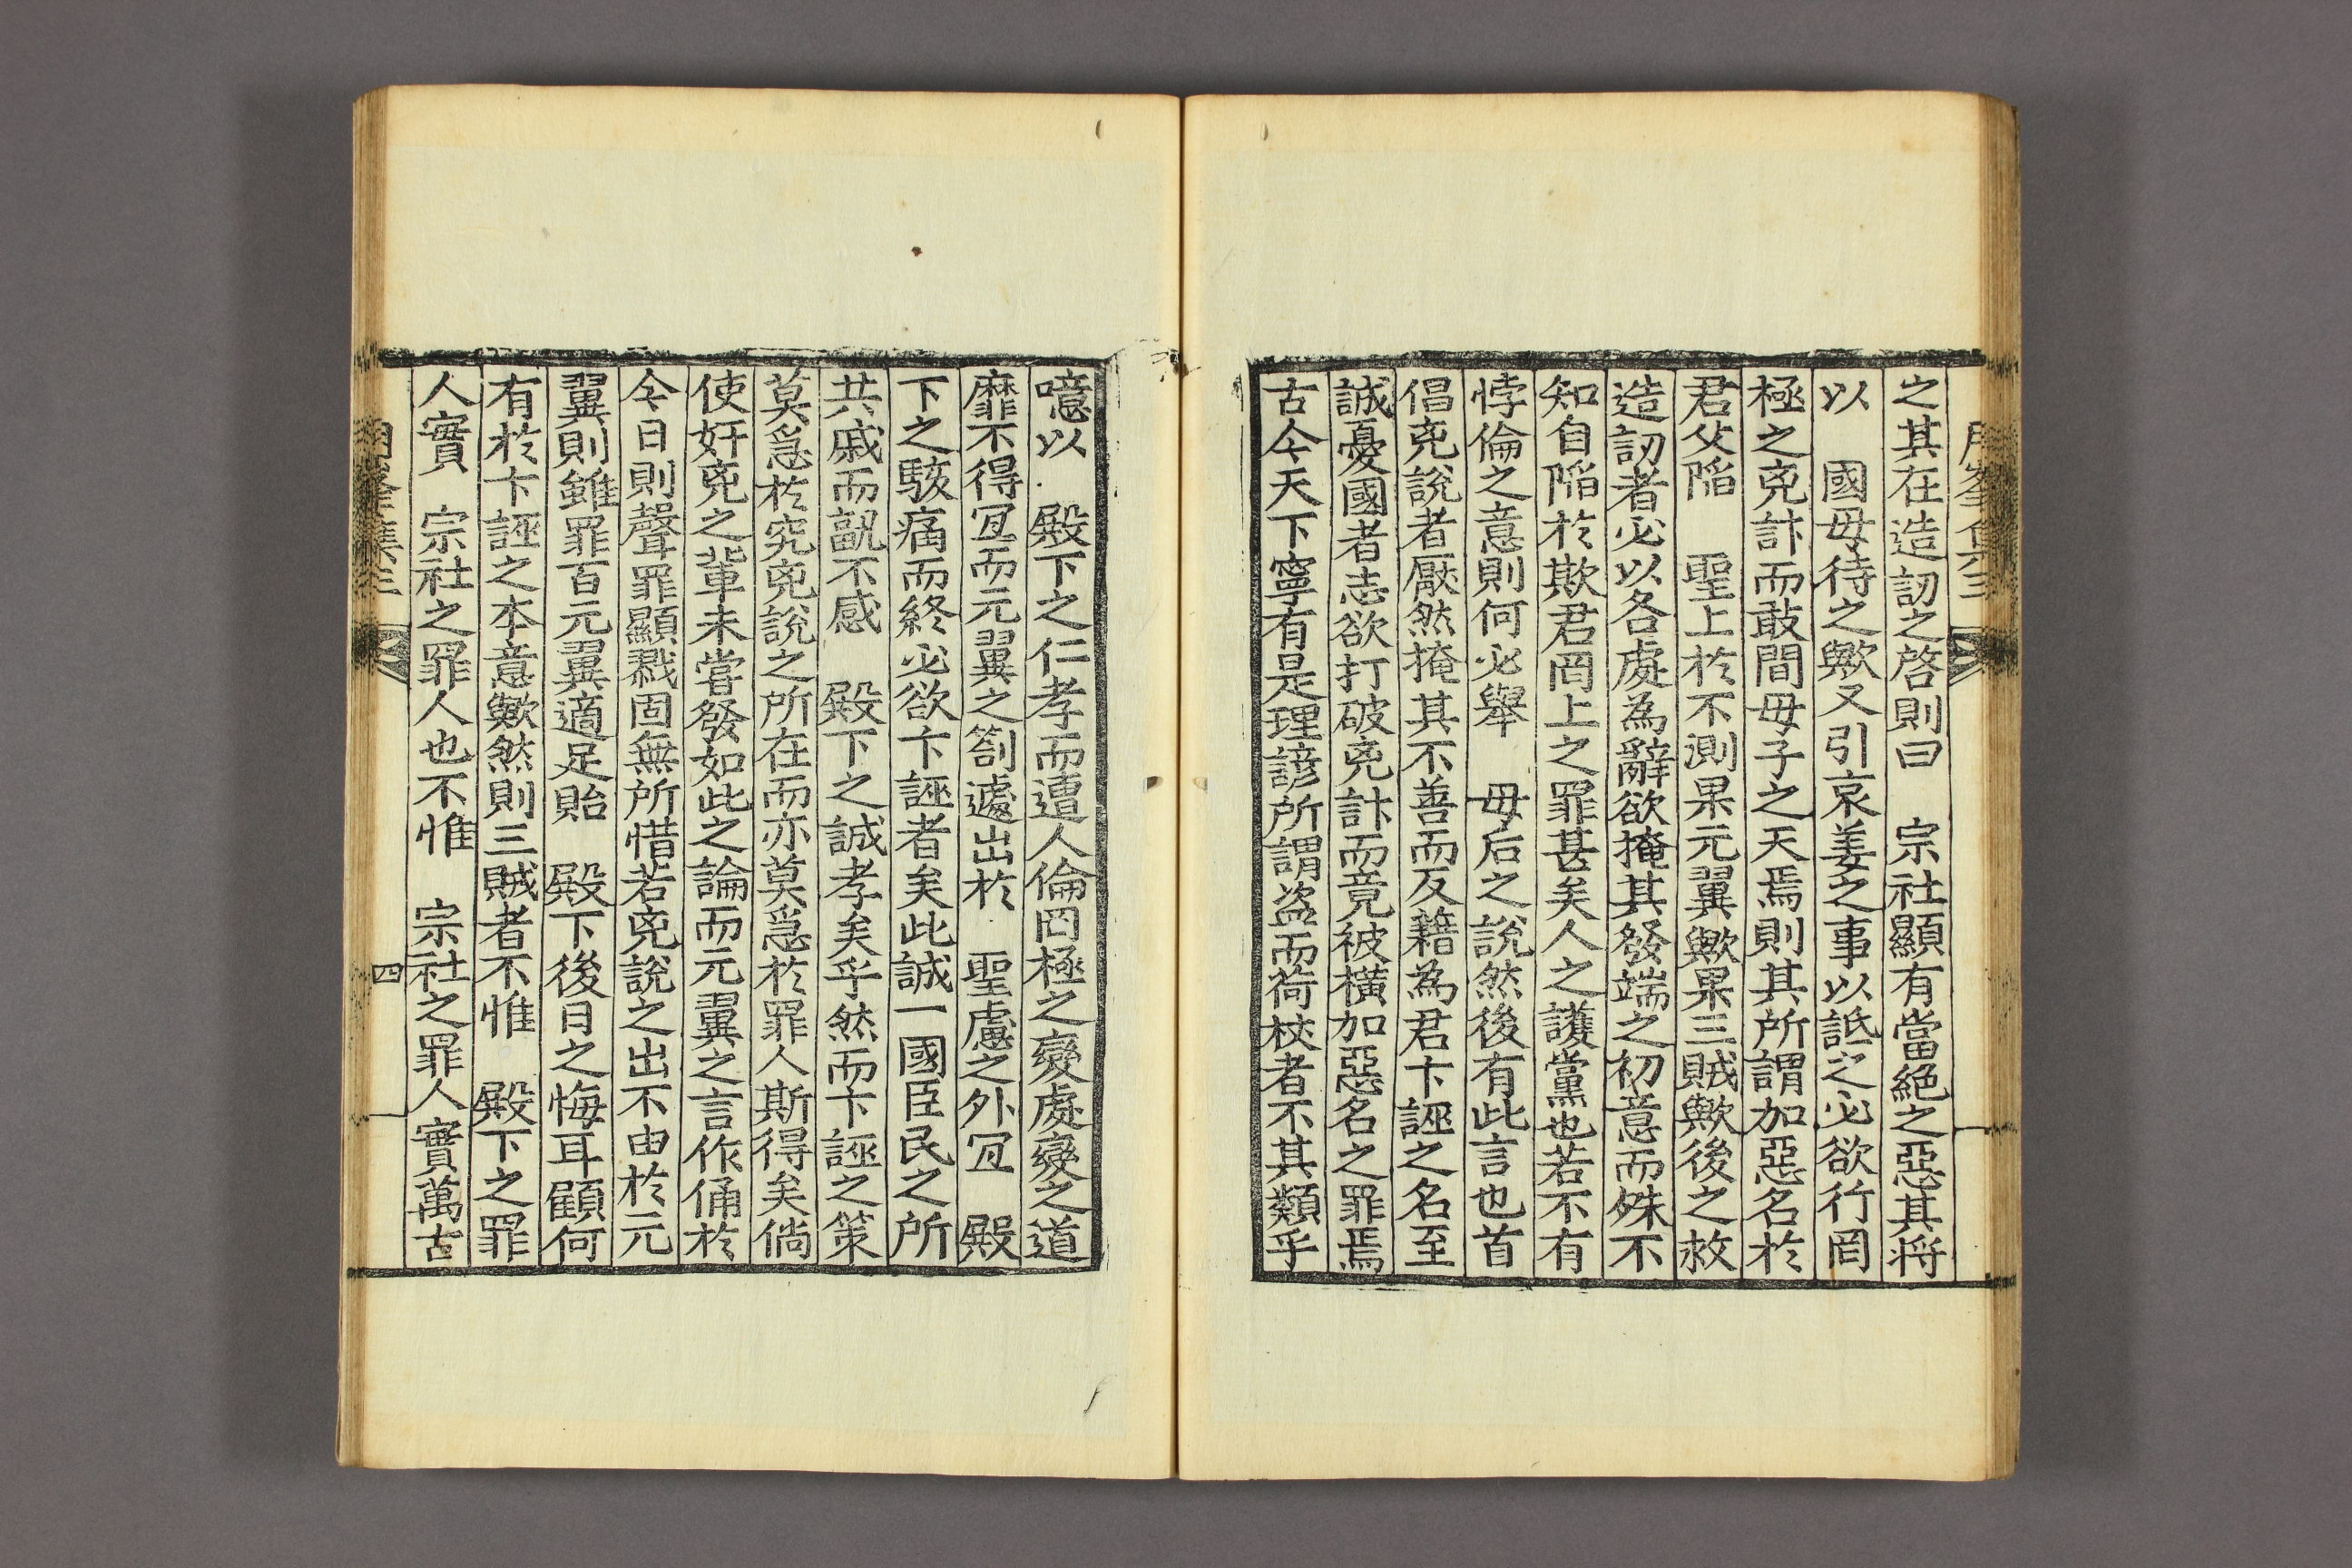 之其在造訒之啓則曰　宗社顯有當絕之惡其将
以　國母待之歟又引哀姜之事以詆之必欲行罔
極之兇計而敢間母子之天焉則其所謂加惡名於
君父陷　聖上於不測果元翼歟果三賊歟後之救
造訒者必以各處為辭欲掩其發端之初意而殊不
知自陷於欺君罔上之罪甚矣人之護黨也若不有
悖倫之意則何必舉　母后之說然後有此言也首
倡兇說者厭然掩其不善而反藉為君卞誣之名至
誠憂國者志欲打破兇計而竟被橫加惡名之罪焉
古今天下寧有是理諺所謂盜而荷校者不其類乎
噫以　殿下之仁孝而遭人倫罔極之變處變之道
靡不得冝而元翼之劄遽出於　聖慮之外冝　殿
下之駭痛而終必欲卞誣者矣此誠一國臣民之所
共戚而孰不感　殿下之誠孝矣乎然而卞誣之策
莫急於究兇說之所在而亦莫急於罪人斯得矣倘
使奸兇之輩未嘗發如此之論而元翼之言作俑於
今日則聲罪顯戮固無所惜若兇說之出不由於元
翼則雖罪百元翼適足貽　殿下後日之悔耳顧何
有於卞誣之本意歟然則三賊者不惟　殿下之罪
人實　宗社之罪人也不惟　宗社之罪人實萬古
四